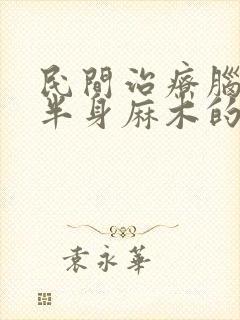 民間治療腦
半身麻木的
袁永華